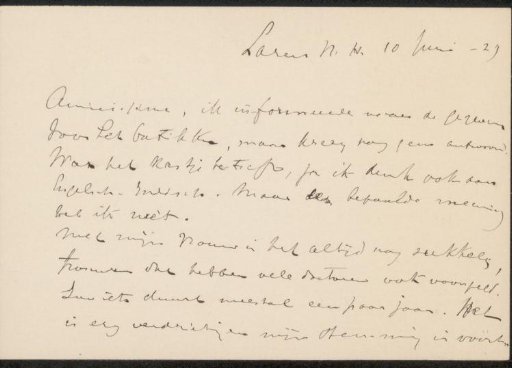 Laren N. H. 10 Juni - 29
Amice, ik informeerde naar de gegevens
voor het batikken, maar kreeg nog geen antwoord
Wat het kastje betreft, ja ik denk ook aan
Engelsch-Indisch. Maar een bepaalde meening
heb ik niet.
Met mijn vrouw is het altijd nog sukkelen,
trouwens dat hebben vele doctoren ook voorspeld.
Zoo iets duurt meestal een paar jaar. Het
is erg verdrietig en mijn stemming is